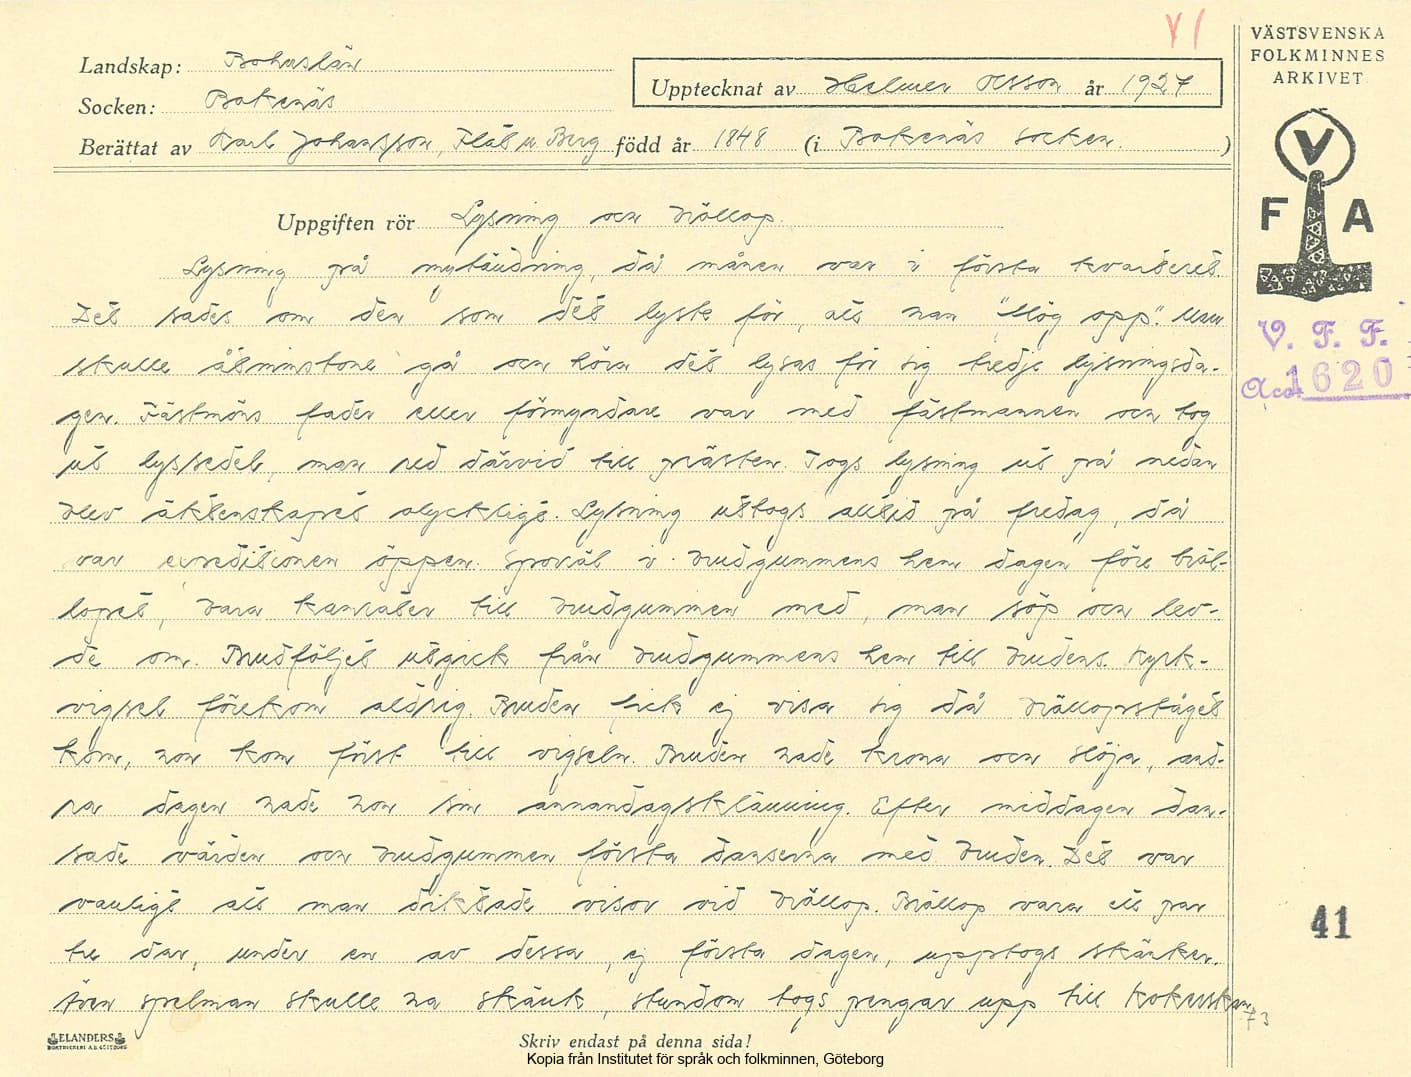 V 1
VÄSTSVENSKA
FOLKMINNES
ARKIVET
Landskap: Bohuslän
Upptecknat av Helmer Olsson år 1927
Socken: Bokenäs
Berättat av Karl Johansson, Berg född år 1848 (i Bokenäs socken.)
V
F A
Uppgiften rör Lysning och bröllop.
Lysning på nytändning, då månen var i första kvarteret.
Det sades om den som det lyste för, att han "flög opp". Man
skulle åtminstone gå och höra det lysas för sig tredje lysningsda-
gen. Fästmöns fader eller förmyndare var med fästmannen och tog
ut lyssedel, man red därvid till prästen. Togs lysning ut på nedan
blev äktenskapet olyckligt. Lysning uttogs alltid på fredag, då
var expeditionen öppen. i brudgummens hem dagen före bröl-
lopet, bara kamrater till brudgummen med, man söp och lev-
de om. Brudföljet utgick från brudgummens hem till brudens. Kyrk-
vigsel förekom aldrig. Bruden fick ej visa sig då bröllopståget
kom, hon kom först till vigseln. Bruden hade krona och slöja, and-
ra dagen hade hon sin annandagsklänning. Efter middagen dan-
sade värden och brudgummen första danserna med bruden. Det var
vanligt att man diktade visor vid bröllop. Bröllop varar ett par
tre dar, under en av dessa, ej första dagen, upptogs skänken.
Även spelman skulle ha skänk, stundom togs pengar upp till kokerskan.
V. F. F.
Acc. 1620
41
73
ELANDERS
BOKTRYCKERI A.B. GÖTEBORG
Skriv endast på denna sida!
Kopia från Institutet för språk och folkminnen, Göteborg